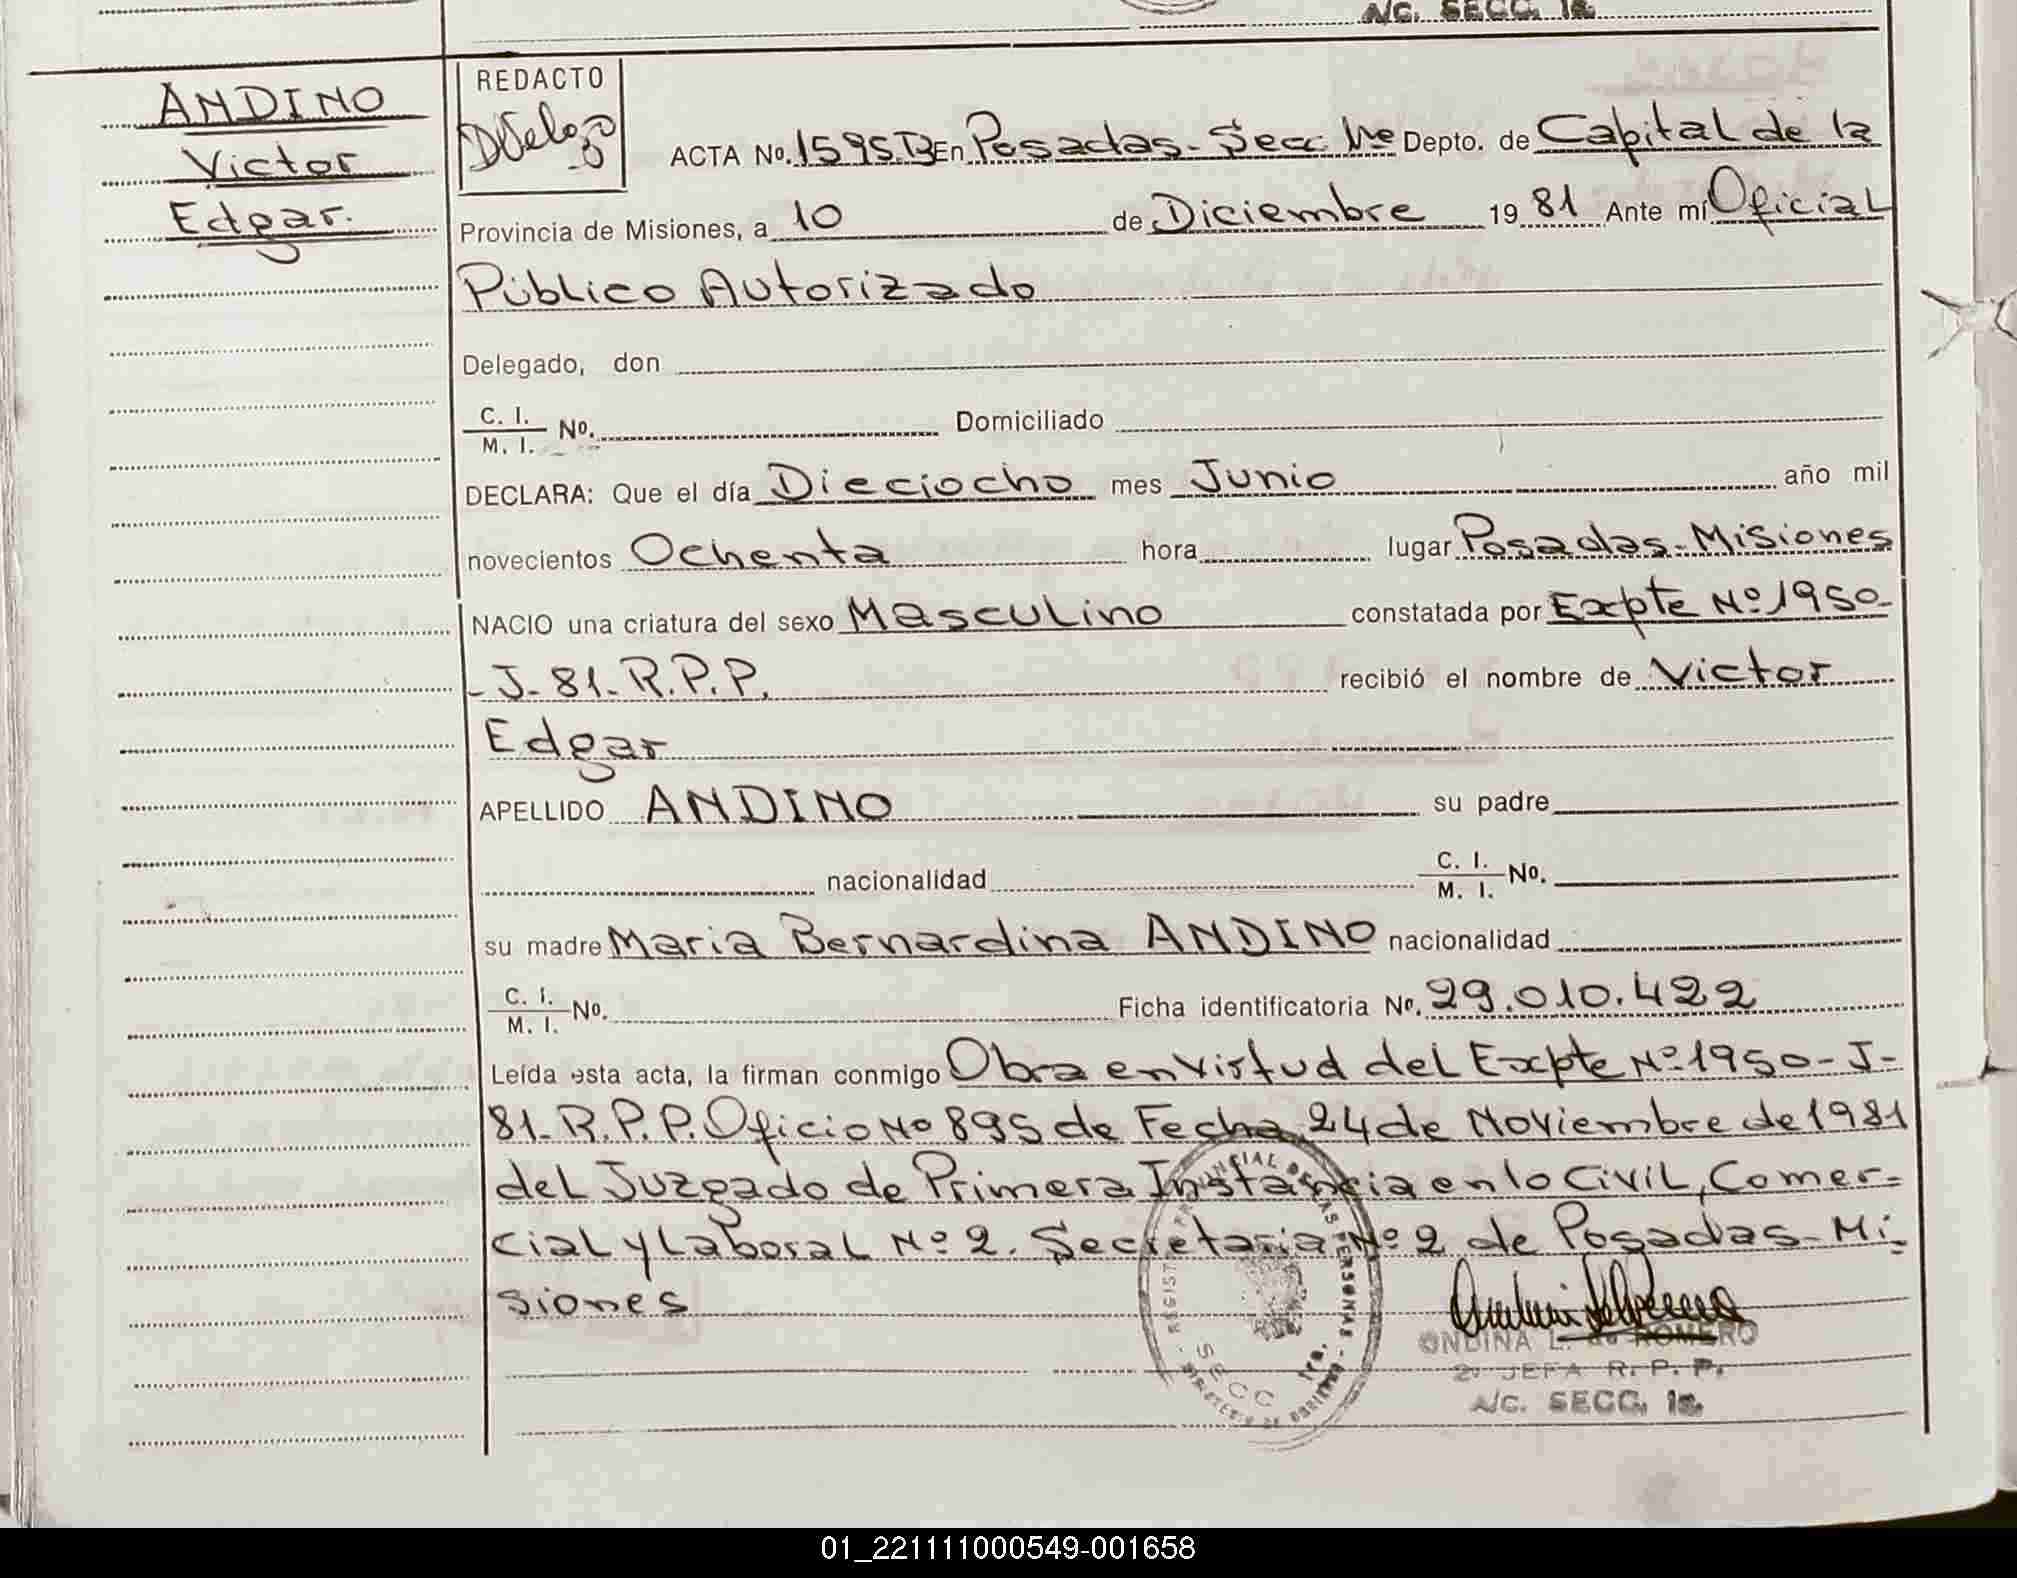 A/C. SECC. 1a.
ANDINO
Victor
Edgar.
REDACTO
ACTA No. 1595 B En Posadas - Secc 1ra Depto. de Capital de la
Provincia de Misiones, a 10 de Diciembre 19 81 Ante mi Oficial
Público Autorizado
Delegado, don
C. I.
M. I. No. Domiciliado
DECLARA: Que el día Dieciocho mes Junio año mil
novecientos Ochenta hora lugar Posadas - Misiones
NACIO una criatura del sexo Masculino constatada por Expte Nº 1950-
-J-81-R.P.P. recibió el nombre de Victor
Edgar
APELLIDO ANDINO su padre
nacionalidad C. I.
M. I. No.
su madre Maria Bernardina ANDINO nacionalidad
C. I.
M. I. No. Ficha identificatoria No. 29.010.422
Leída esta acta, la firman conmigo Obra en virtud del Expte Nº 1950-J-
81-R.P.P. Oficio Nº 895 de Fecha 24 de Noviembre de 1981
del Juzgado de Primera Instancia en lo Civil, Comer-
cial y Laboral Nº 2. Secretaria Nº 2 de Posadas - Mi-
siones
ONDINA L. de ROMERO
2ª JEFA R. P. P.
A/C. SECC. 1a.
01_221111000549-001658